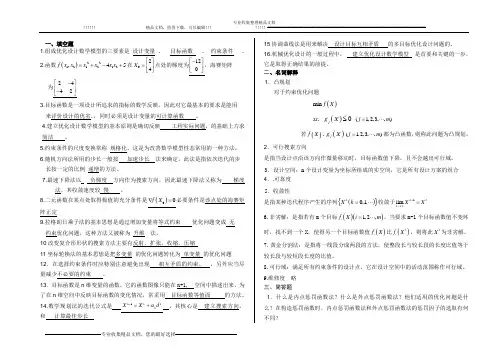 专业收集精品文档
!!!!!! 精品文档，值得下载，可以编辑!!! !!!!!!
一、填空题
1.组成优化设计数学模型的三要素是 设计变量 、 目标函数 、 约束条件 。
2.函数f(x₁,x₂)=x₁²+x₂²-4x₁x₂+5在X₀=[2 4]点处的梯度为[-12 0]，海赛矩阵
为[2 -4 -4 2]
3.目标函数是一项设计所追求的指标的数学反映，因此对它最基本的要求是能用
来评价设计的优劣，，同时必须是设计变量的可计算函数 。
4.建立优化设计数学模型的基本原则是确切反映 工程实际问题，的基础上力求
简洁 。
5.约束条件的尺度变换常称 规格化，这是为改善数学模型性态常用的一种方法。
6.随机方向法所用的步长一般按 加速步长 法来确定，此法是指依次迭代的步
长按一定的比例 递增的方法。
7.最速下降法以 负梯度 方向作为搜索方向，因此最速下降法又称为 梯度
法，其收敛速度较 慢 。
8.二元函数在某点处取得极值的充分条件是∇f(X₀)=0必要条件是该点处的海赛矩
阵正定
9.拉格朗日乘子法的基本思想是通过增加变量将等式约束 优化问题变成 无
约束优化问题，这种方法又被称为 升维 法。
10改变复合形形状的搜索方法主要有反射，扩张，收缩，压缩
11坐标轮换法的基本思想是把多变量 的优化问题转化为 单变量 的优化问题
12．在选择约束条件时应特别注意避免出现 相互矛盾的约束， ，另外应当尽
量减少不必要的约束 。
13．目标函数是n维变量的函数，它的函数图像只能在n+1， 空间中描述出来，为
了在n维空间中反映目标函数的变化情况，常采用 目标函数等值面 的方法。
14.数学规划法的迭代公式是 Xᵏ⁺¹=Xᵏ+αₖdᵏ ，其核心是 建立搜索方向，
和 计算最佳步长
15协调曲线法是用来解决 设计目标互相矛盾 的多目标优化设计问题的。
16.机械优化设计的一般过程中， 建立优化设计数学模型 是首要和关键的一步，
它是取得正确结果的前提。
二、名词解释
1．凸规划
对于约束优化问题
min f(X)
s.t. gⱼ(X)≤0 (j=1,2,3,···,m)
若f(X)、gⱼ(X)(j=1,2,3,···,m)都为凸函数，则称此问题为凸规划。
2．可行搜索方向
是指当设计点沿该方向作微量移动时，目标函数值下降，且不会越出可行域。
3．设计空间：n个设计变量为坐标所组成的实空间，它是所有设计方案的组合
4．.可靠度
5．收敛性
是指某种迭代程序产生的序列{Xᵏ(k=0,1,···)}收敛于lim Xᵏ⁺¹=X* k→∞
6.非劣解：是指若有m个目标fᵢ(X)(i=1,2,···m)，当要求m-1个目标函数值不变坏
时，找不到一个X，使得另一个目标函数值fᵢ(X)比fᵢ(X*)，则将此X*为非劣解。
7.黄金分割法：是指将一线段分成两段的方法，使整段长与较长段的长度比值等于
较长段与较短段长度的比值。
8.可行域：满足所有约束条件的设计点，它在设计空间中的活动范围称作可行域。
9.维修度 略
三、简答题
1．什么是内点惩罚函数法？什么是外点惩罚函数法？他们适用的优化问题是什
么？在构造惩罚函数时，内点惩罚函数法和外点惩罚函数法的惩罚因子的选取有何
不同？
--专业收集精品文档，您的最好选择--
--专业收集精品文档，您的最好选择--